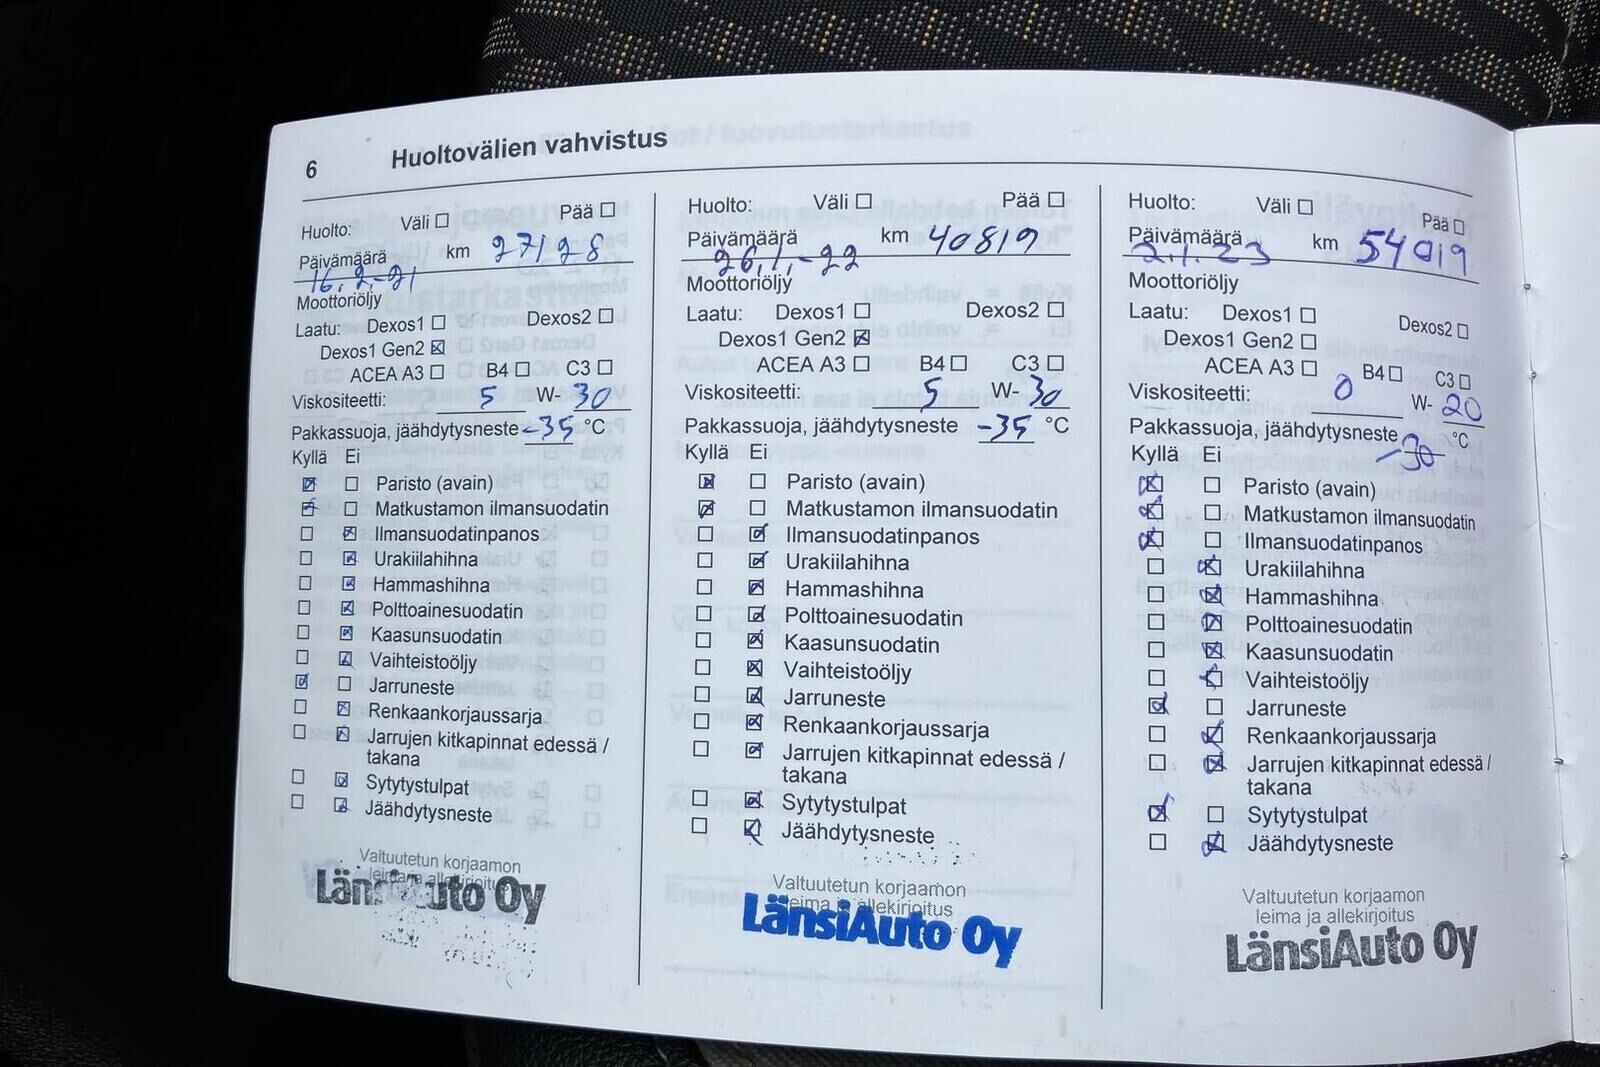 6 Huoltovälien vahvistus
Huolto: Väli ☐ Pää ☐
Päivämäärä km 27128
16.2.-21
Moottoriöljy
Laatu: Dexos1 ☐ Dexos2 ☐
Dexos1 Gen2 ☒
ACEA A3 ☐ B4 ☐ C3 ☐
Viskositeetti: 5 W- 30
Pakkassuoja, jäähdytysneste -35 °C
Kyllä Ei
☒ ☐ Paristo (avain)
☒ ☐ Matkustamon ilmansuodatin
☐ ☒ Ilmansuodatinpanos
☐ ☒ Urakiilahihna
☐ ☒ Hammashihna
☐ ☒ Polttoainesuodatin
☐ ☒ Kaasunsuodatin
☐ ☒ Vaihteistoöljy
☒ ☐ Jarruneste
☐ ☒ Renkaankorjaussarja
☐ ☒ Jarrujen kitkapinnat edessä /
takana
☐ ☒ Sytytystulpat
☐ ☒ Jäähdytysneste
Valtuutetun korjaamon
leima ja allekirjoitus
LänsiAuto Oy
Huolto: Väli ☐ Pää ☐
Päivämäärä km 40819
26.1.-22
Moottoriöljy
Laatu: Dexos1 ☐ Dexos2 ☐
Dexos1 Gen2 ☒
ACEA A3 ☐ B4 ☐ C3 ☐
Viskositeetti: 5 W- 30
Pakkassuoja, jäähdytysneste -35 °C
Kyllä Ei
☒ ☐ Paristo (avain)
☒ ☐ Matkustamon ilmansuodatin
☐ ☒ Ilmansuodatinpanos
☐ ☒ Urakiilahihna
☐ ☒ Hammashihna
☐ ☒ Polttoainesuodatin
☐ ☒ Kaasunsuodatin
☐ ☒ Vaihteistoöljy
☐ ☒ Jarruneste
☐ ☒ Renkaankorjaussarja
☐ ☒ Jarrujen kitkapinnat edessä /
takana
☐ ☒ Sytytystulpat
☐ ☒ Jäähdytysneste
Valtuutetun korjaamon
leima ja allekirjoitus
LänsiAuto Oy
Huolto: Väli ☐ Pää ☐
Päivämäärä km 54019
2.1.23
Moottoriöljy
Laatu: Dexos1 ☐ Dexos2 ☐
Dexos1 Gen2 ☐
ACEA A3 ☐ B4 ☐ C3 ☐
Viskositeetti: 0 W- 20
Pakkassuoja, jäähdytysneste -30 °C
Kyllä Ei
☒ ☐ Paristo (avain)
☒ ☐ Matkustamon ilmansuodatin
☒ ☐ Ilmansuodatinpanos
☐ ☒ Urakiilahihna
☐ ☒ Hammashihna
☐ ☒ Polttoainesuodatin
☐ ☒ Kaasunsuodatin
☐ ☒ Vaihteistoöljy
☒ ☐ Jarruneste
☐ ☒ Renkaankorjaussarja
☐ ☒ Jarrujen kitkapinnat edessä /
takana
☒ ☐ Sytytystulpat
☐ ☒ Jäähdytysneste
Valtuutetun korjaamon
leima ja allekirjoitus
LänsiAuto Oy